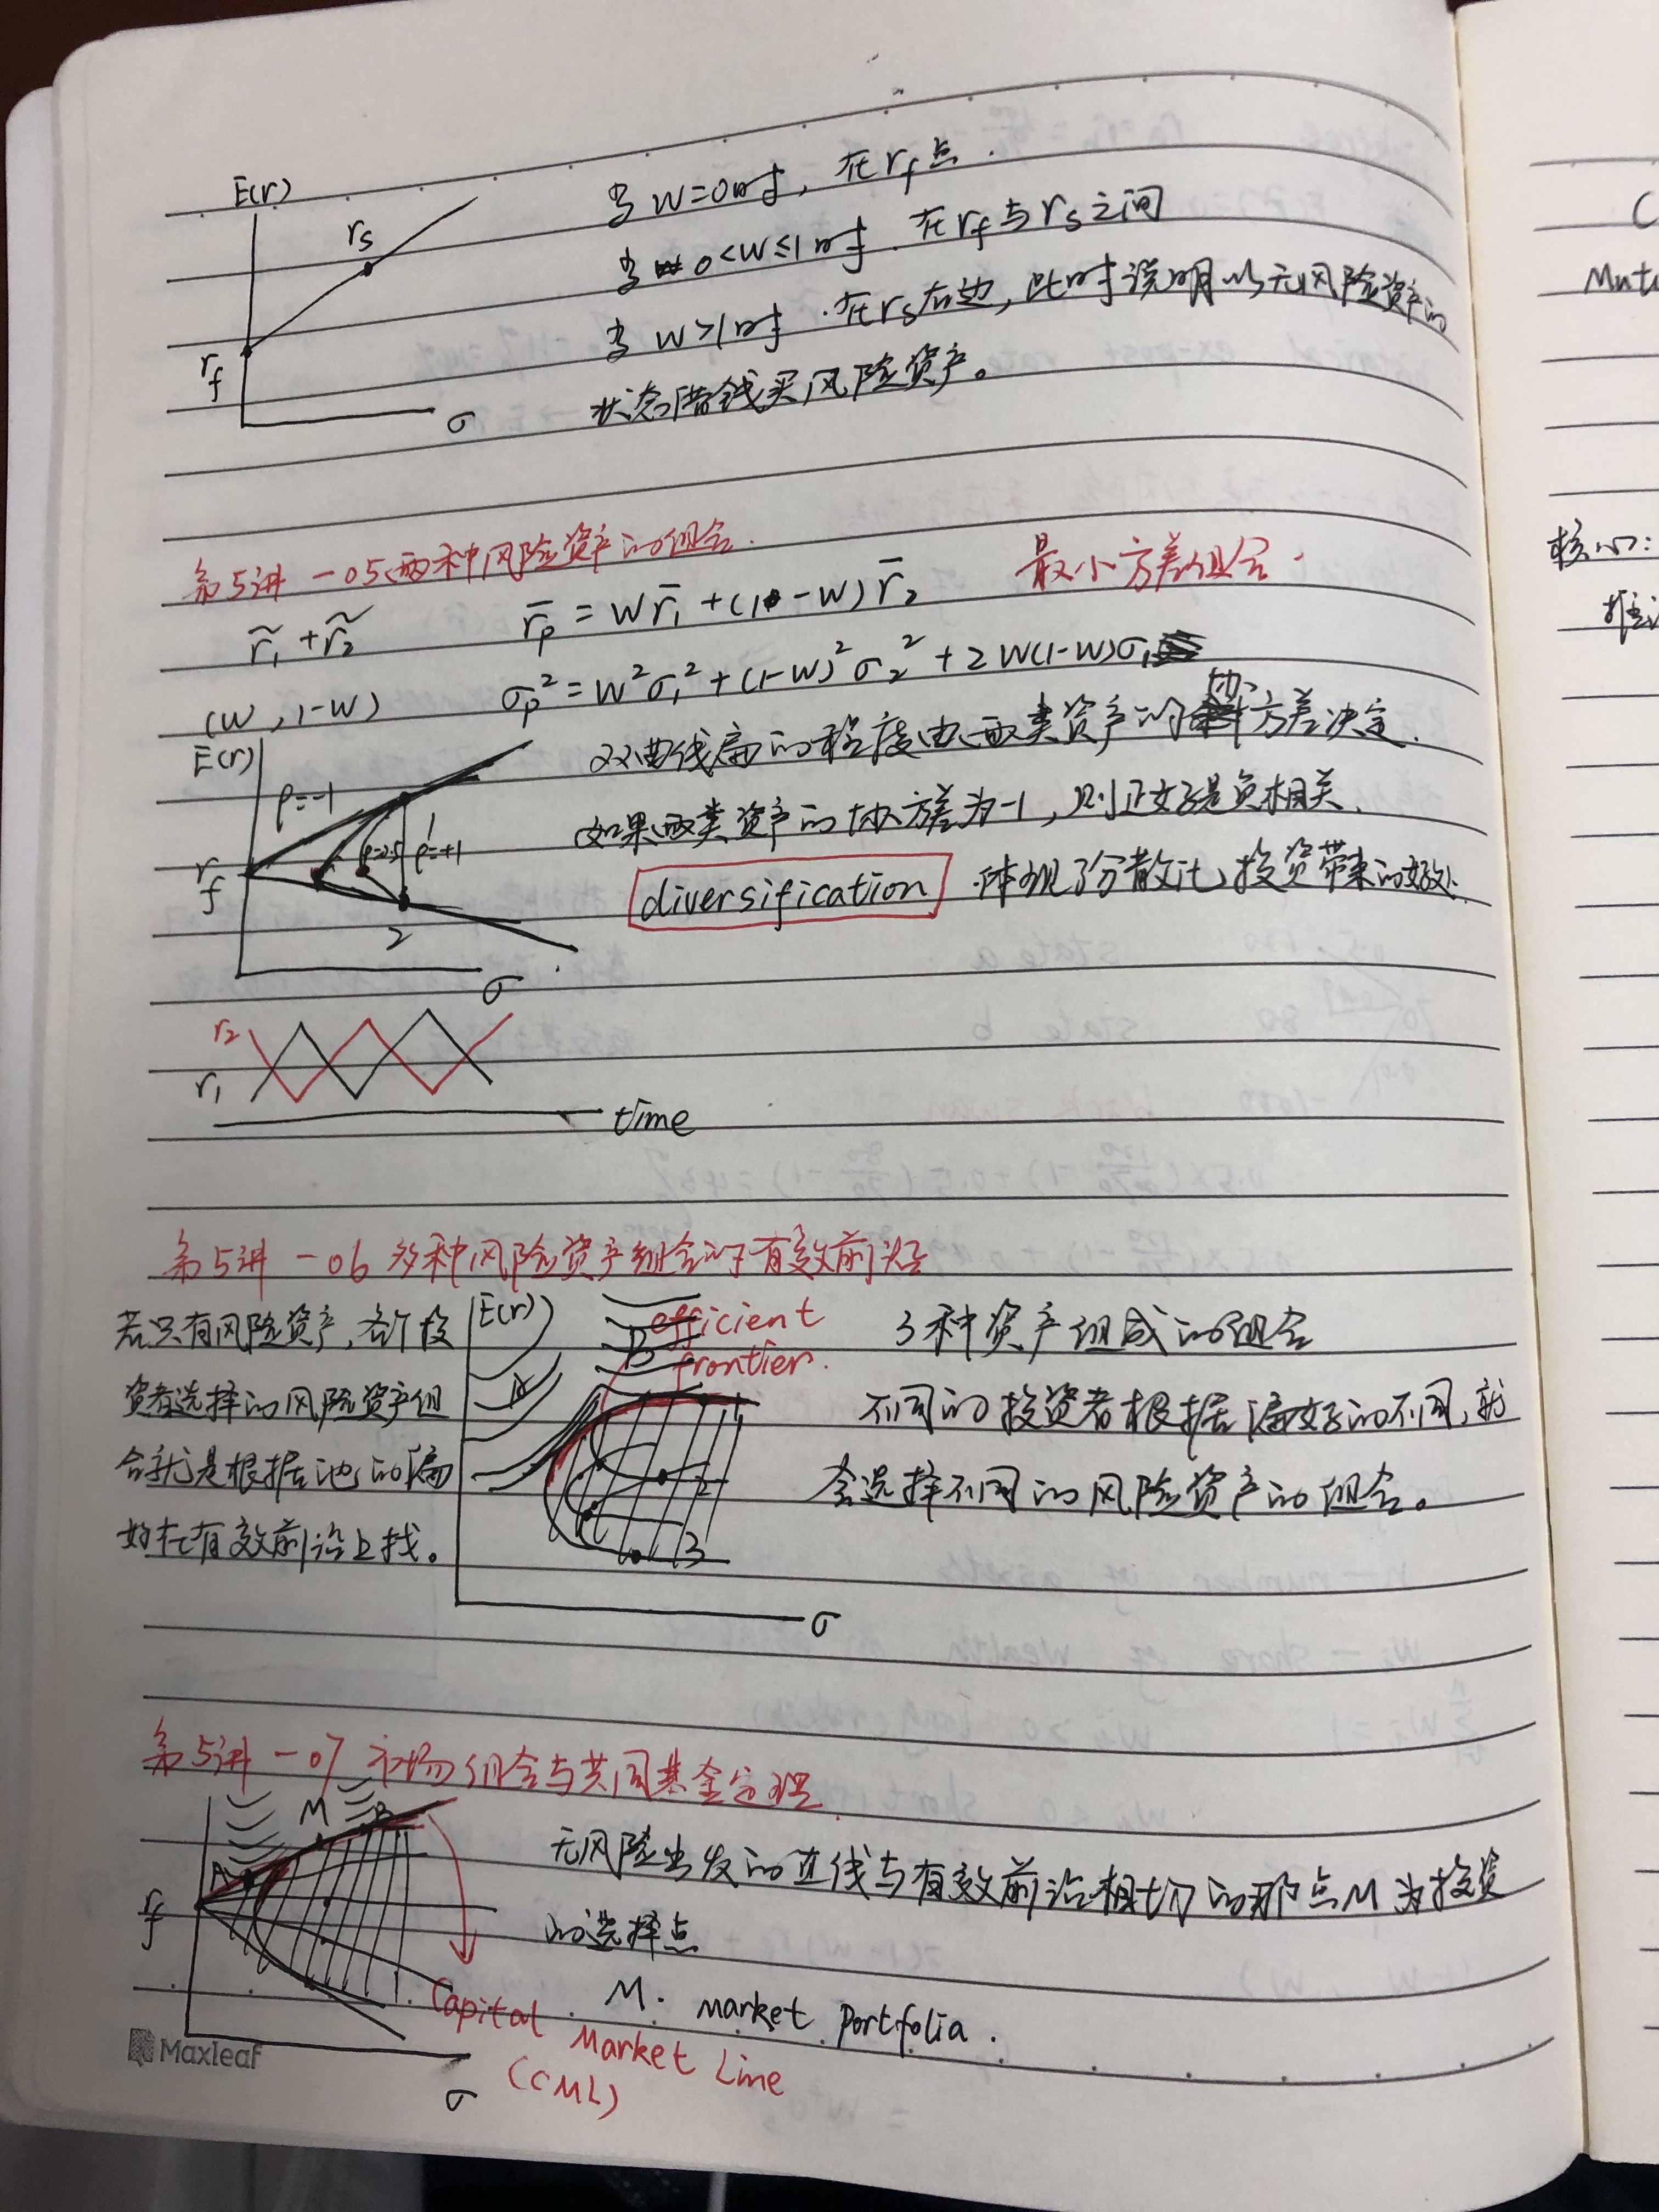 E(r)
rs
rf
σ
当 W=0时, 在rf点.
当 0<W≤1时. 在rf与rs之间
当 W>1时.在rs右边,此时说明以无风险资产的
状态借钱买风险资产。
第5讲 -05 两种风险资产的组合.
最小方差组合.
r̃₁+r̃₂
r̄p = Wr̄₁+(1-W)r̄₂
(W,1-W)
σp²=W²σ₁²+(1-W)²σ₂²+2W(1-W)σ₁
E(r)
ρ=-1
1
ρ=+1
rf
2
σ
双曲线扁的程度由两类资产的协方差决定.
如果两类资产的协方差为-1,则正好是负相关.
diversification .体现了分散化投资带来的好处.
r2
r1
time
第5讲 -06 多种风险资产组合的有效前沿
若只有风险资产,各个投
资者选择的风险资产组
合就是根据他的偏
好在有效前沿上找。
E(r)
A
B
efficient
frontier.
1
2
3
σ
3种资产组成的组合
不同的投资者根据偏好的不同,就
会选择不同的风险资产的组合。
第5讲 -07 市场组合与共同基金定理
M
B
A
rf
σ
无风险出发的直线与有效前沿相切的那点M为投资
的选择点
M. market portfolia.
Capital
Market Line
(CML)
Maxleaf
C
Mut
核心: